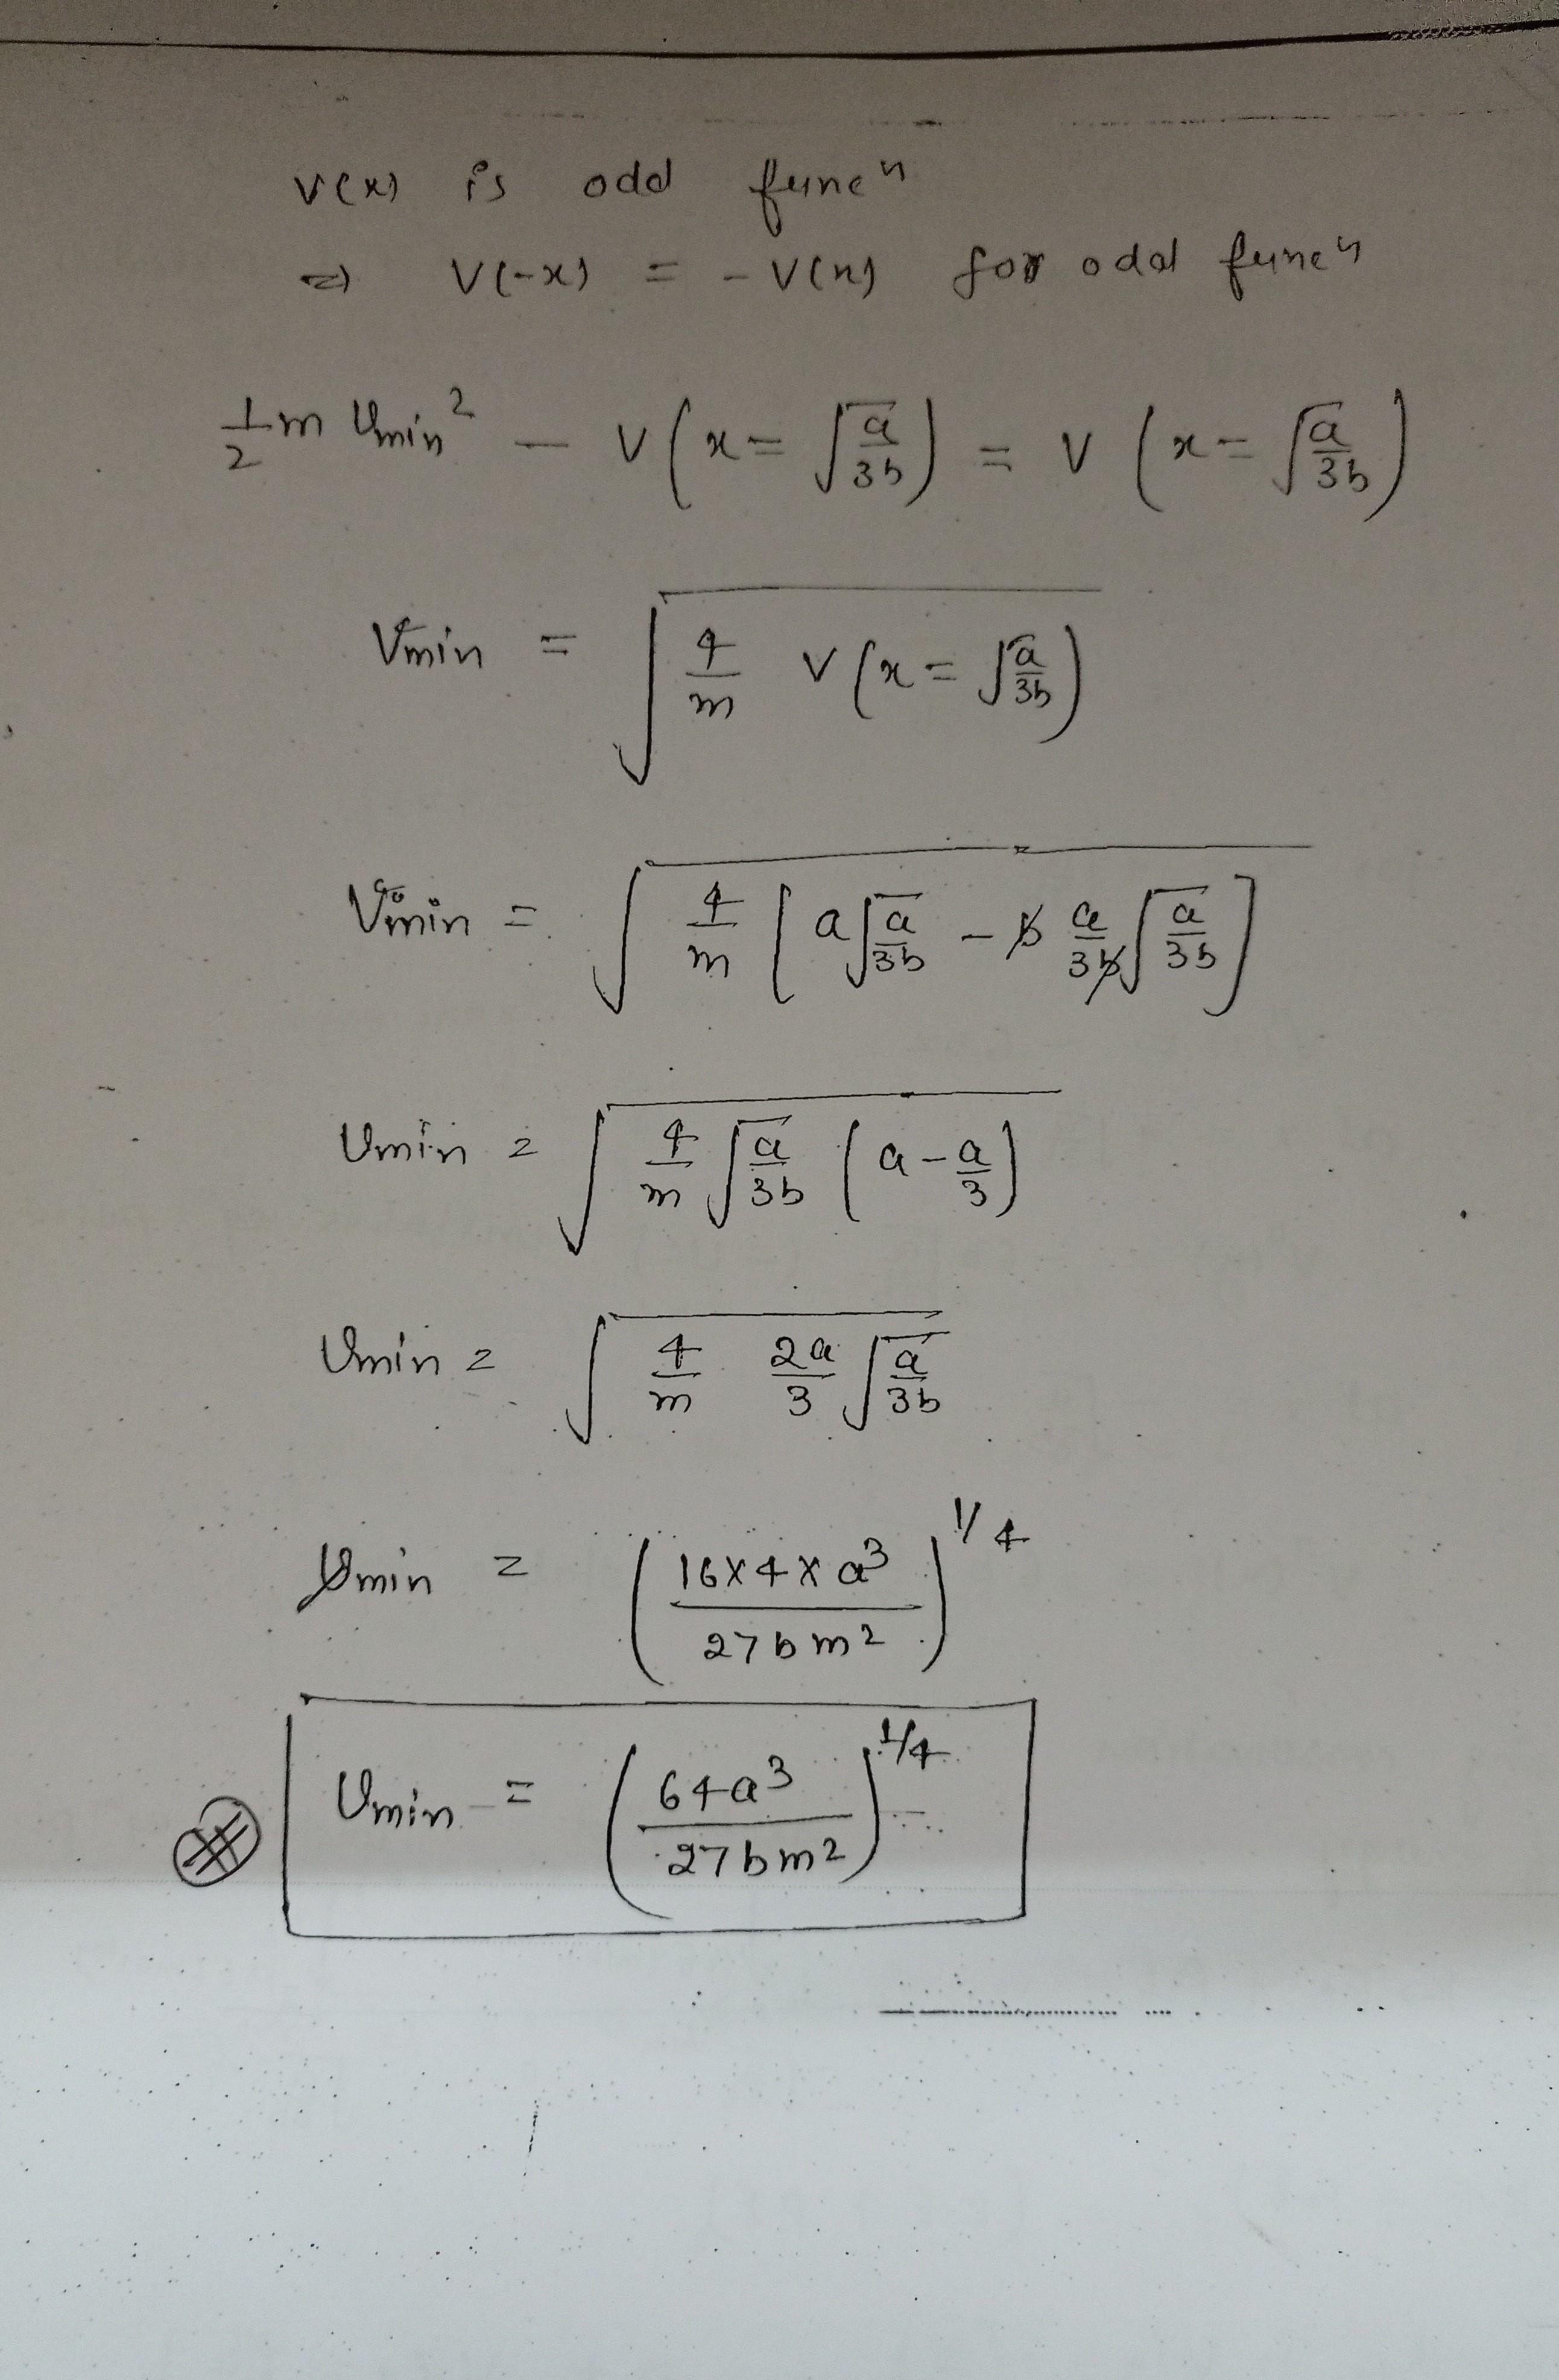 V(x) is odd funcn
⇒ V(-x) = - V(x) for odd funcn
1/2 m Vmin² - V(x = √(a/3b)) = V(x = √(a/3b))
Vmin = √(4/m V(x = √(a/3b)))
Vmin = √(4/m [a√(a/3b) - b a/3b √(a/3b)])
Vmin = √(4/m √(a/3b) (a - a/3))
Vmin = √(4/m 2a/3 √(a/3b))
Vmin = (16×4×a³/27bm²)^1/4
Vmin = (64a³/27bm²)^1/4